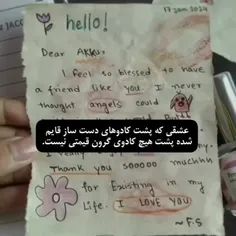 hello!
17 Jan 2024
Dear AKKU,
I feel so blessed to have
a friend like you. I never
thought angels could
عشقی که پشت کادوهای دست ساز قایم
شده پشت هیچ کادوی گرون قیمتی نیست.
Thank you sooooo muchhh
for Existing in my
life. I LOVE YOU
~F.S